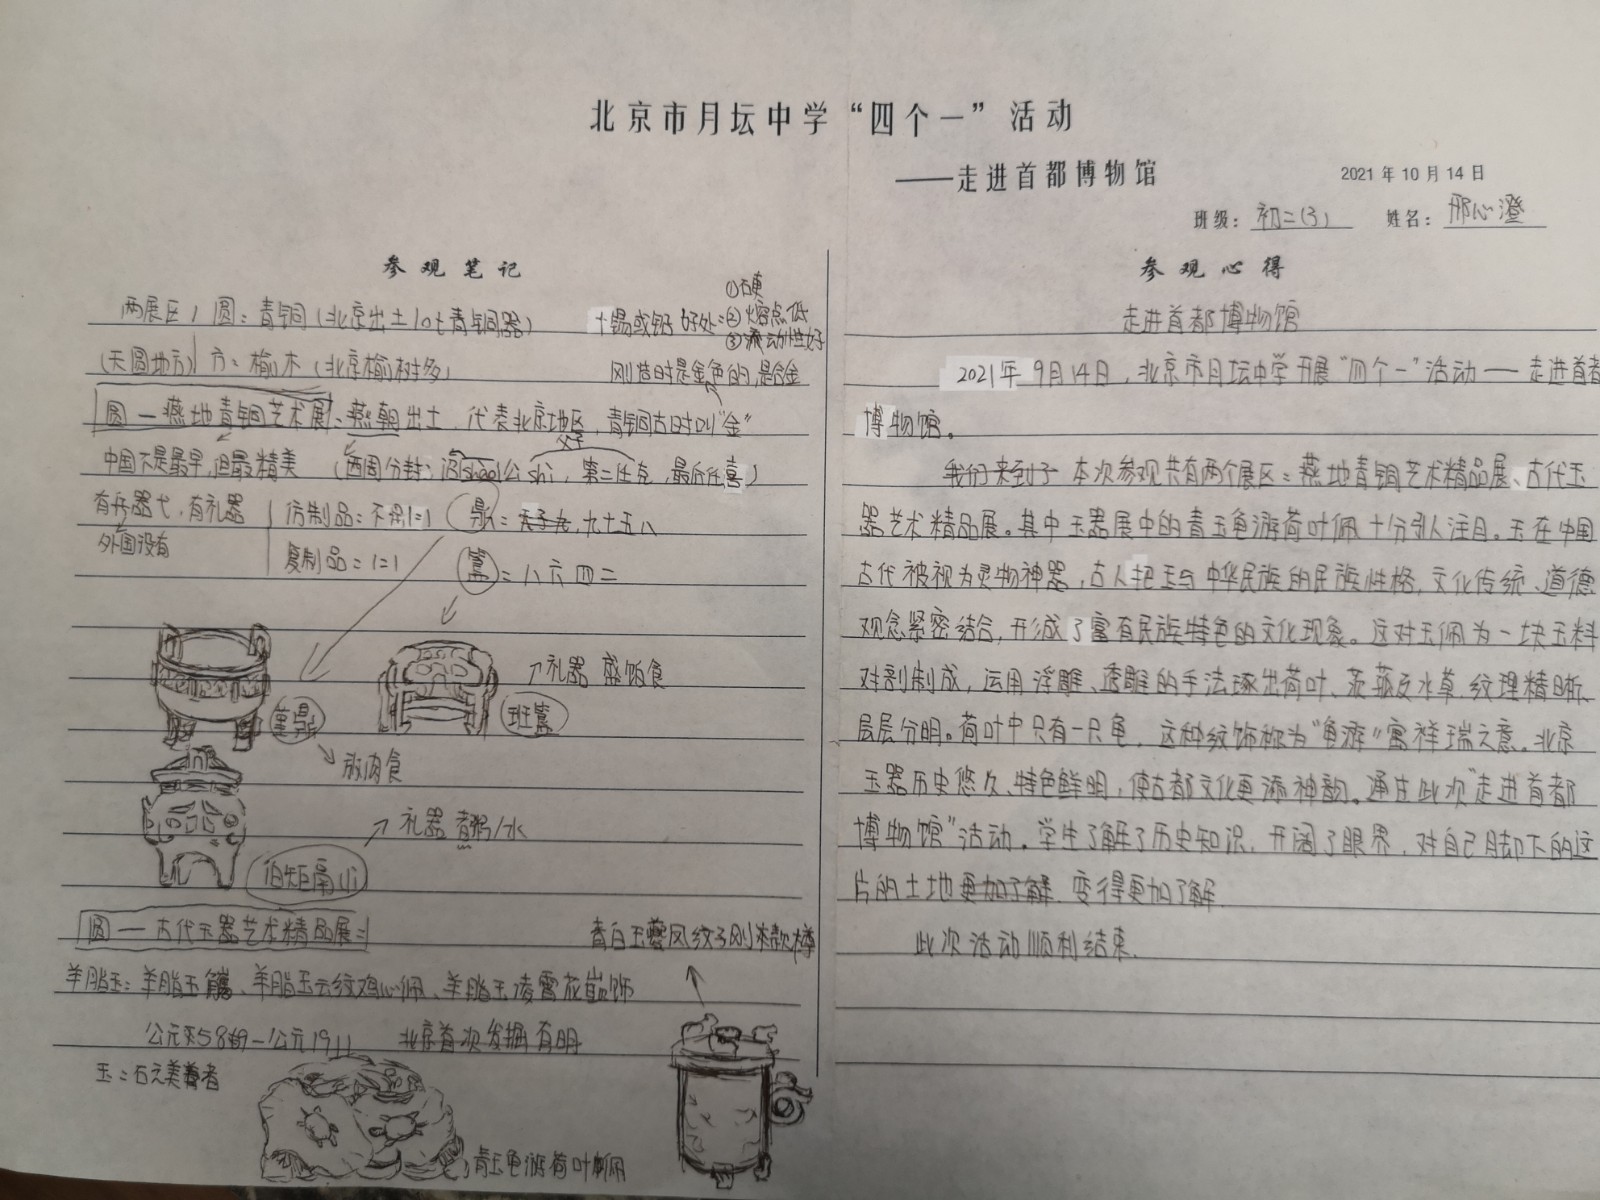 北京市月坛中学“四个一”活动
——走进首都博物馆
2021年10月14日
班级：初二(3) 姓名：邢心澄
参观笔记
两展区 圆：青铜(北京出土10t青铜器) +锡或铅 好处：①硬
②熔点低
③流动性好
(天圆地方) 方：榆木(北京榆树多) 刚造时是金色的，是合金
圆—燕地青铜艺术展：燕朝出土，代表北京地区，青铜古时叫“金”
父子
中国不是最早，但最精美 (西周分封：召shào公shì，第二任克，最后任喜)
有兵器弋，有礼器 仿制品：不用1:1 鼎：天子九，九七五八
外国没有 复制品=1:1 簋：八六四二
礼器 盛饭食
堇鼎 班簋
放肉食
礼器 煮粥/水
伯矩鬲
圆—古代玉器艺术精品展 青白玉夔凤纹子刚款樽
羊脂玉：羊脂玉觿、羊脂玉云纹鸡心佩、羊脂玉凌霄花饰
北京首次发掘有明
玉：石之美者
青玉龟游荷叶佩
参观心得
走进首都博物馆
2021年9月14日，北京市月坛中学开展“四个一”活动——走进首都
博物馆。
我们来到了 本次参观共有两个展区：燕地青铜艺术精品展、古代玉
器艺术精品展。其中玉器展中的青玉龟游荷叶佩十分引人注目。玉在中国
古代被视为灵物神器，古人把玉与中华民族的民族性格，文化传统、道德
观念紧密结合，形成了富有民族特色的文化现象。这对玉佩为一块玉料
对剖制成，运用浮雕、透雕的手法琢出荷叶、茨菇及水草，纹理精晰，
层层分明。荷叶中只有一只龟，这种纹饰称为“龟游”寓祥瑞之意。北京
玉器历史悠久、特色鲜明，使古都文化更添神韵。通过此次“走进首都
博物馆”活动。学生了解了历史知识，开阔了眼界，对自己脚下的这
片的土地更加了解，变得更加了解
此次活动顺利结束.